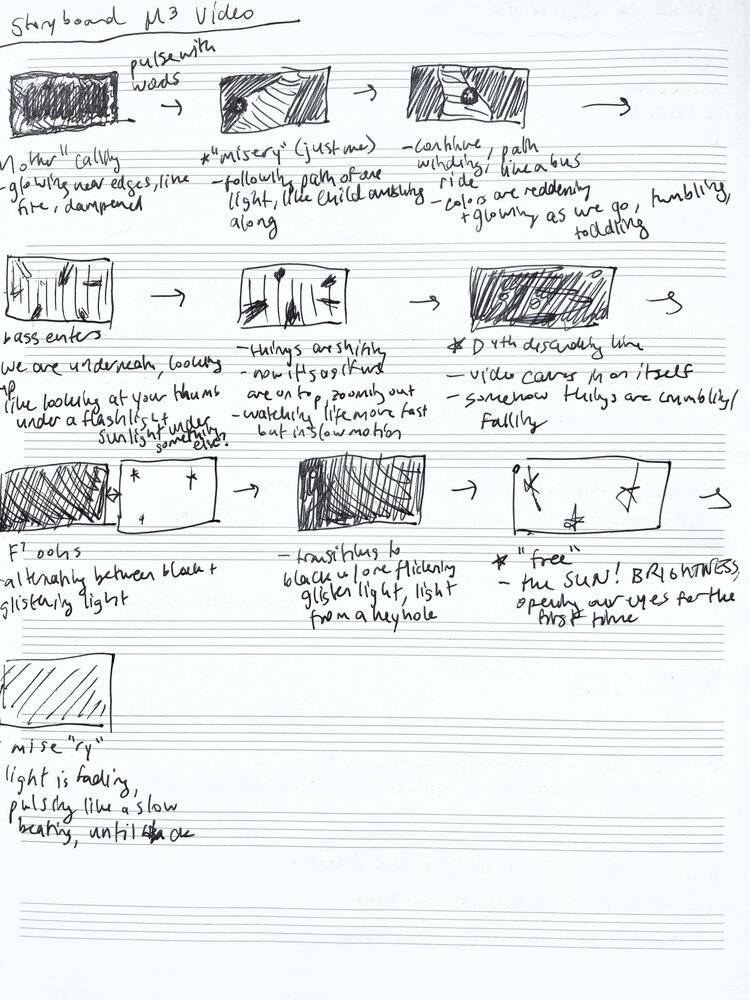 Storyboard M3 Video
pulse with
words
Mother" calling
- glowing near edges, like
fire, dampened
* "misery" (just me)
- following path of one
light, like child
along
- continue, path
winding, like a bus
ride
- colors are reddening
+ glowing as we go, tumbling,
toddling
bass enters
we are underneath, looking
up
like looking at your thumb
under a flashlight
sunlight under
something
else?
- things are shifting
- now it's as if we
are on top, zooming out
- watching life move fast
but in slow motion
* D 4th descending line
- video caves in on itself
- somehow things are crumbling/
falling
F² oohs
- alternating between black +
glistening light
- transition to
black w/ one flickering
glisten light, light
from a keyhole
* "free"
- the SUN! BRIGHTNESS,
opening our eyes for the
first time
mise "ry"
light is fading,
pulsing like a slow
beating, until